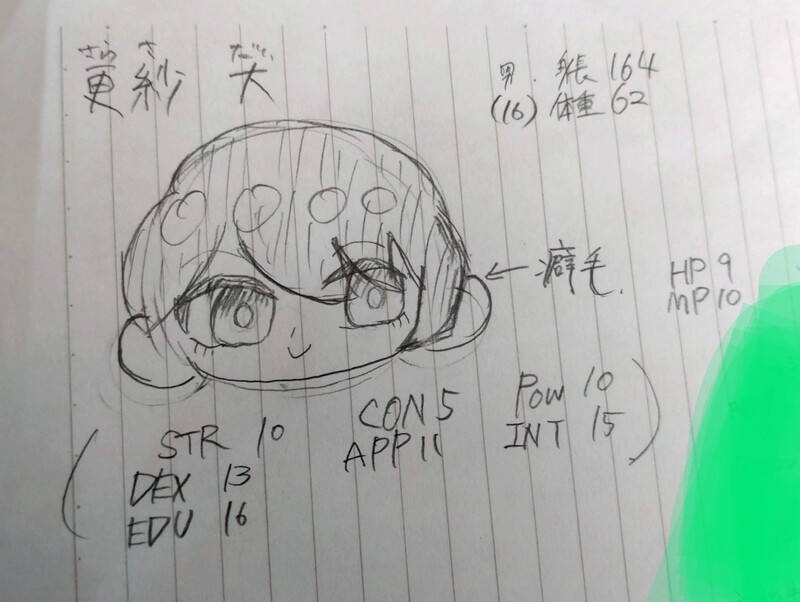 さら さ だい
更紗 大
男. 身長 164
(16) 体重 62
← 癖毛.
HP 9
MP 10
STR 10 CON 5 POW 10
DEX 13 APP 11 INT 15
EDU 16